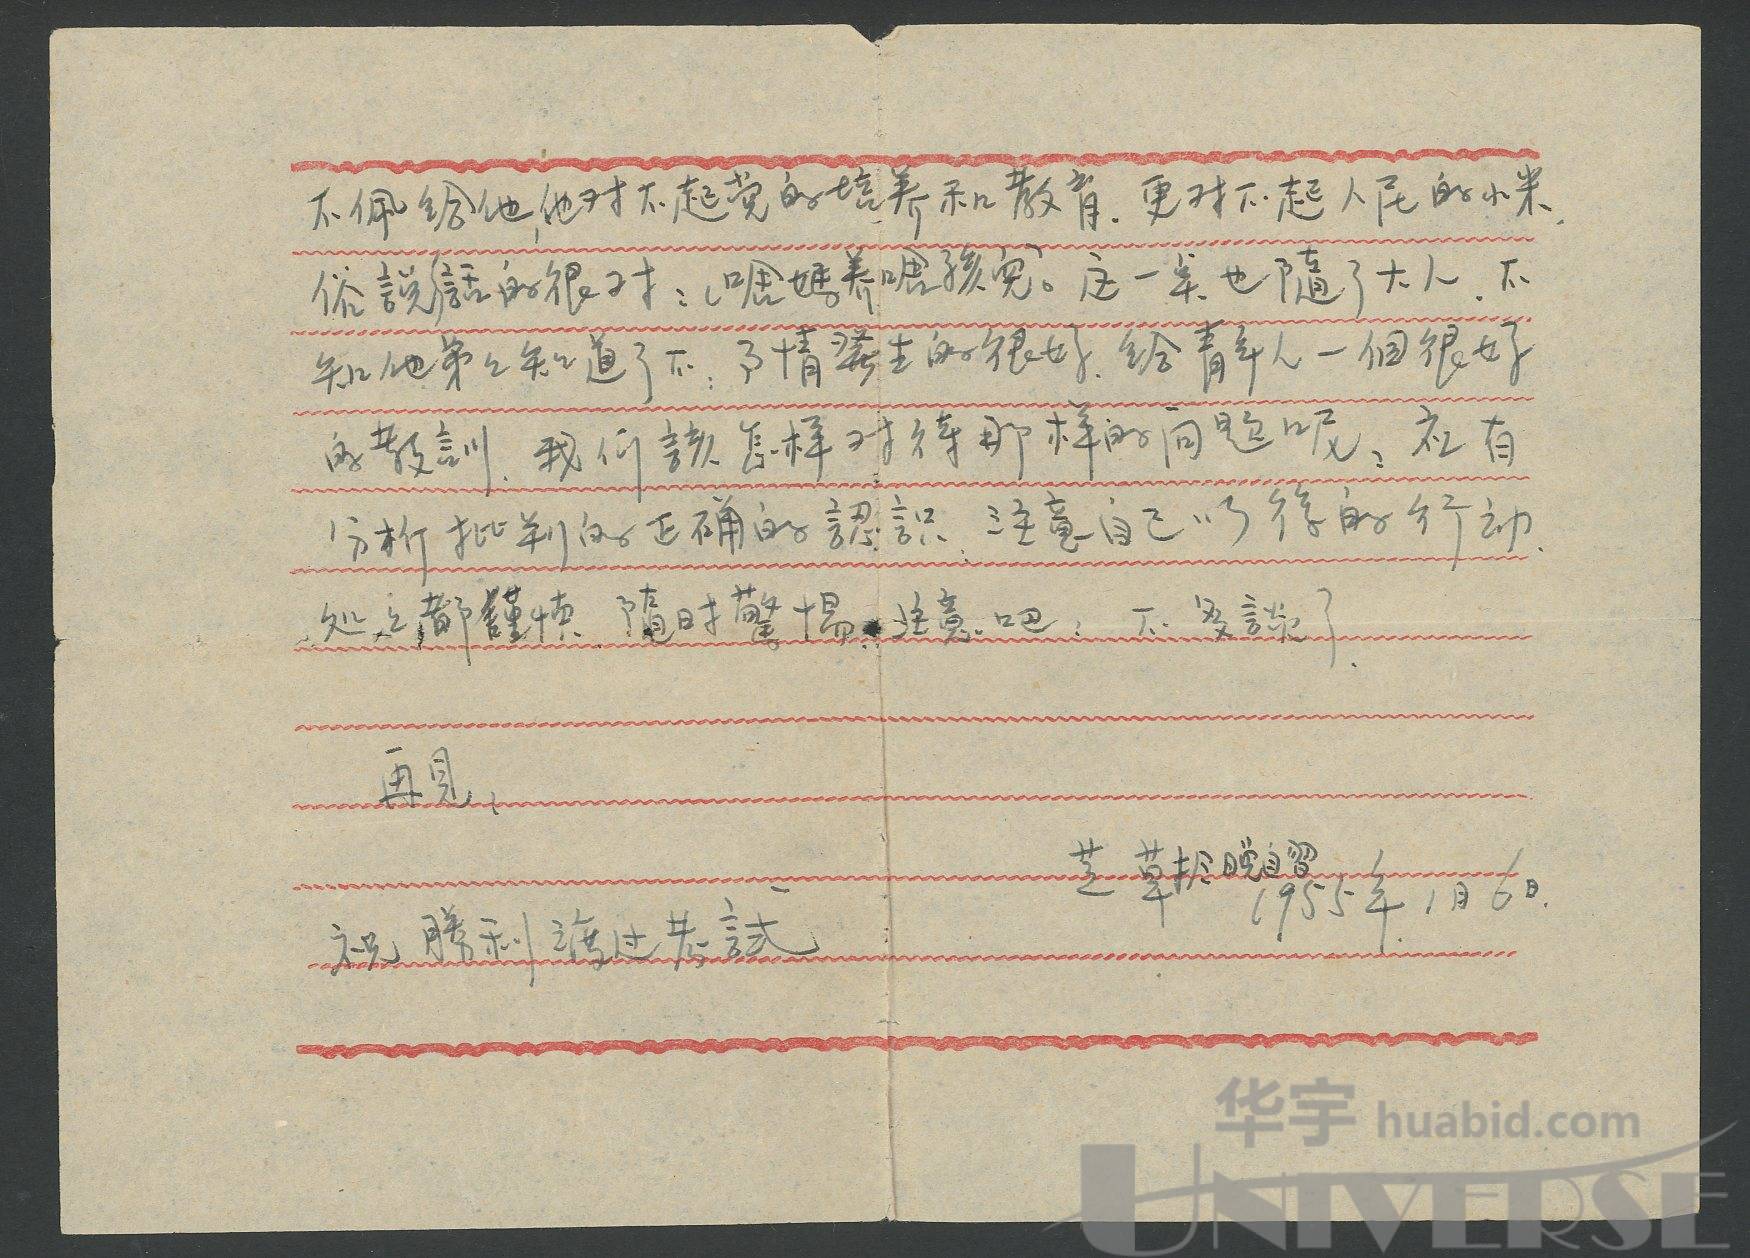 不佩给他,他对不起党的培养和教育.更对不起人民的小米.
俗説話的很对:“啥媽养啥孩児”。这一军也随了大人.不
知他弟々知道了不:了情發生的很好.给青年人一個很好
的教訓.我们該怎样对待那样的问题呢:应有
分析批判的正确的認識.注意自己以后的行动.
处々都謹慎.随时警惕.注意吧:不多談了.
再见、
芝草於晚自習
1955年.1月6日.
祝勝利渡过考試
华宇 huabid.com
UNIVERSE